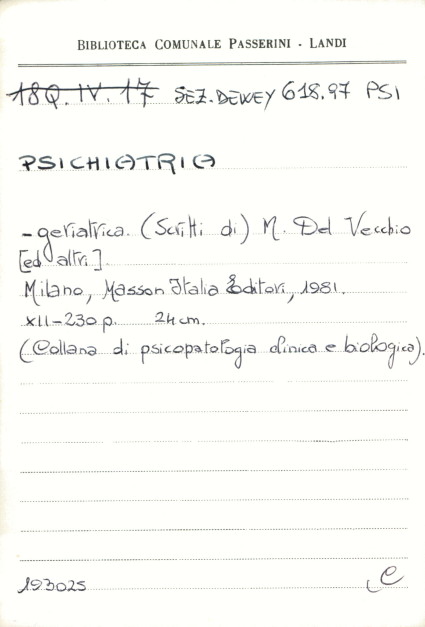 BIBLIOTECA COMUNALE PASSERINI - LANDI
18Q.IV.17 SEZ.DEWEY 618.97 PSI
PSICHIATRIA
- geriatrica. (Scritti di) M. Del Vecchio
[ed altri].
Milano, Masson Italia Editori, 1981.
XII-230 p. 24 cm.
(Collana di psicopatologia clinica e biologica).
193025 C